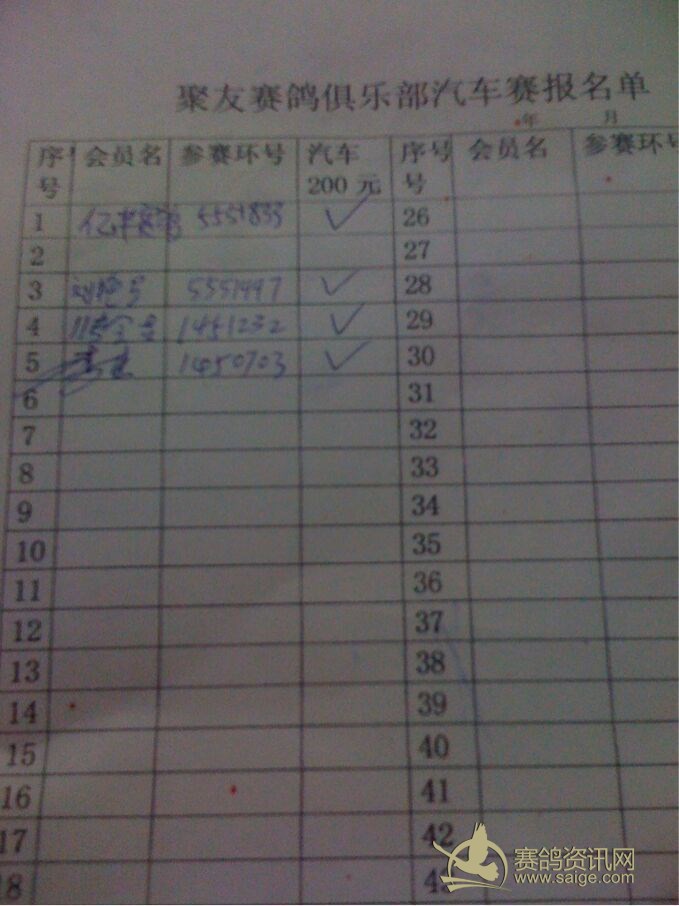 聚友赛鸽俱乐部汽车赛报名单
年 月
序号 会员名 参赛环号 汽车200元 序号号 会员名 参赛环号
1 5551833 ✓ 26
2 27
3 5551997 ✓ 28
4 1451232 ✓ 29
5 1450703 ✓ 30
6 31
7 32
8 33
9 34
10 35
11 36
12 37
13 38
14 39
15 40
16 41
17 42
赛鸽资讯网
www.saige.com